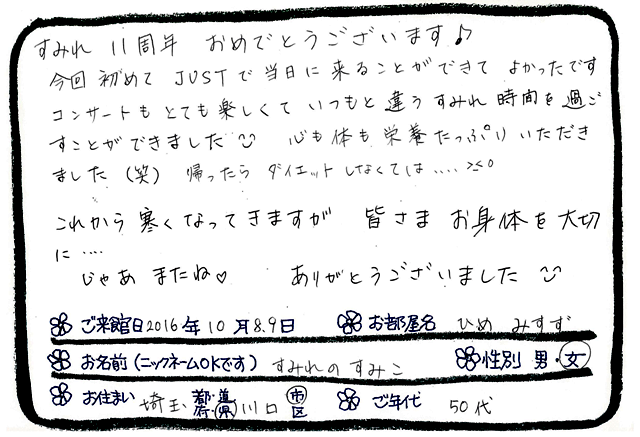 すみれ 11周年 おめでとうございます♪
今回 初めて JUSTで当日に来ることができて よかったです
コンサートも とても楽しくて いつもと違うすみれ時間を過ご
すことができました 心も体も栄養たっぷり いただき
ました (笑) 帰ったら ダイエットしなくては....><。
これから 寒くなってきますが 皆さま お身体を大切
に....
じゃあ またね♡ ありがとうございました
ご来館日 2016年10月8.9日 お部屋名 ひめ みすず
お名前(ニックネームOKです) すみれのすみこ 性別 男・女
お住まい 埼玉 都・道・府・県 川口 市区 ご年代 50代